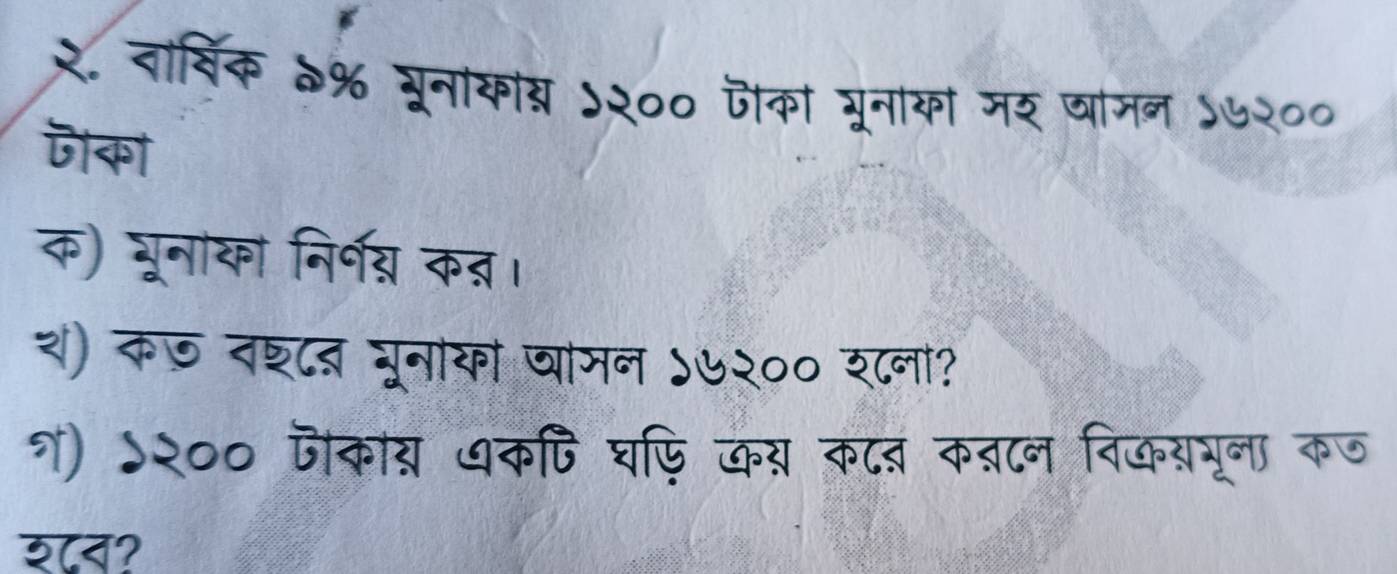 ২. বার্ষিক ৯% মুনাফায় ১২০০ টাকা মুনাফা সহ আসল ১৬২০০
টাকা
ক) মুনাফা নির্ণয় কর।
খ) কত বছরে মুনাফা আসল ১৬২০০ হলো?
গ) ১২০০ টাকায় একটি ঘড়ি ক্রয় করে করলে বিক্রয়মূল্য কত
হবে?